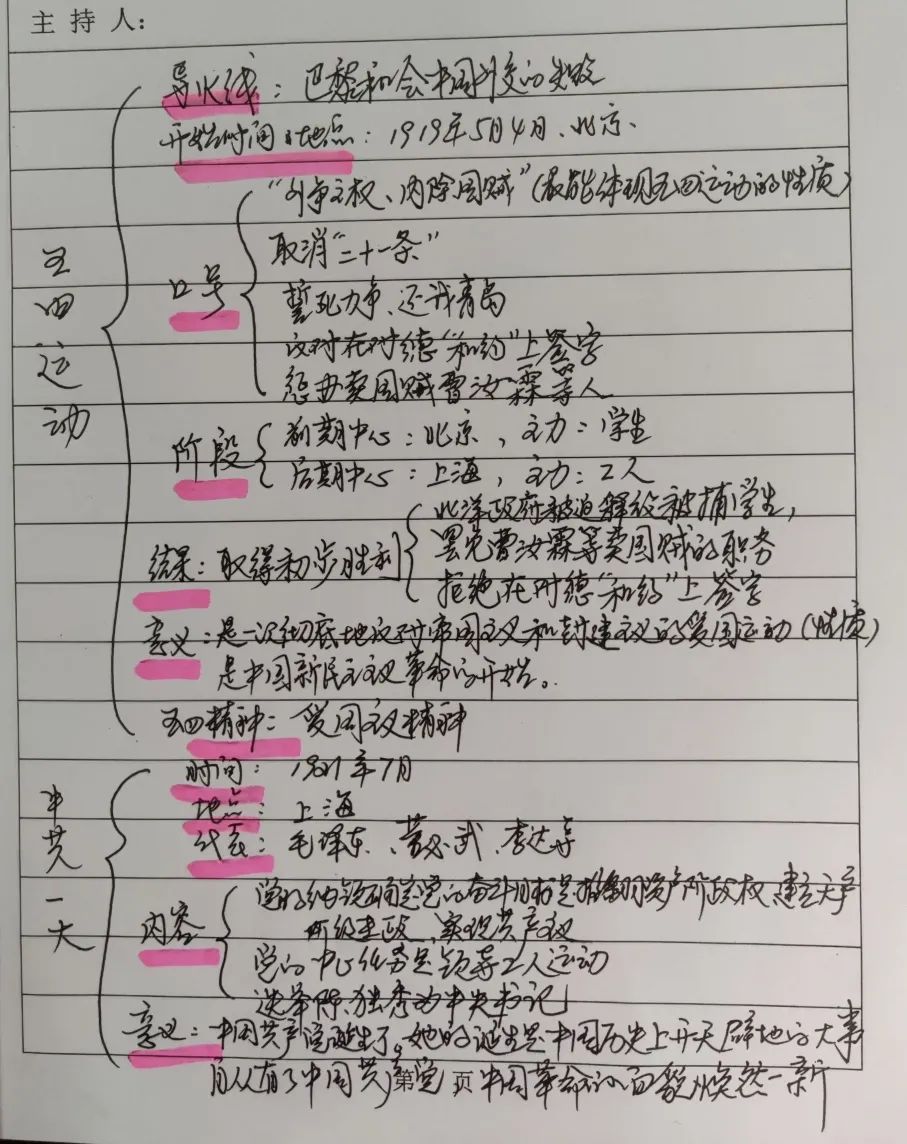 主持人:
导火线：巴黎和会中国外交的失败
开始时间、地点：1919年5月4日、北京.
五四运动
口号
“外争主权、内除国贼”(最能体现五四运动的性质)
取消“二十一条”
誓死力争、还我青岛
反对在对德“和约”上签字
惩办卖国贼曹汝霖等人
阶段
前期中心：北京，主力：学生
后期中心：上海，主力：工人
结果：取得初步胜利
北洋政府被迫释放被捕学生,
罢免曹汝霖等卖国贼的职务
拒绝在对德“和约”上签字
意义：是一次彻底地反对帝国主义和封建主义的爱国运动(性质)
是中国新民主主义革命的开始。
五四精神：爱国主义精神
中共一大
时间：1921年7月
地点：上海
代表：毛泽东、董必武、李达等
内容
党的纲领确定党的奋斗目标是推翻资产阶政权,建立无产
阶级专政、实现共产主义
党的中心任务是领导工人运动
选举陈独秀为中央书记
意义：中国共产党诞生了。她的诞生是中国历史上开天辟地的大事
自从有了中国共产党中国革命的面貌焕然一新
第 页